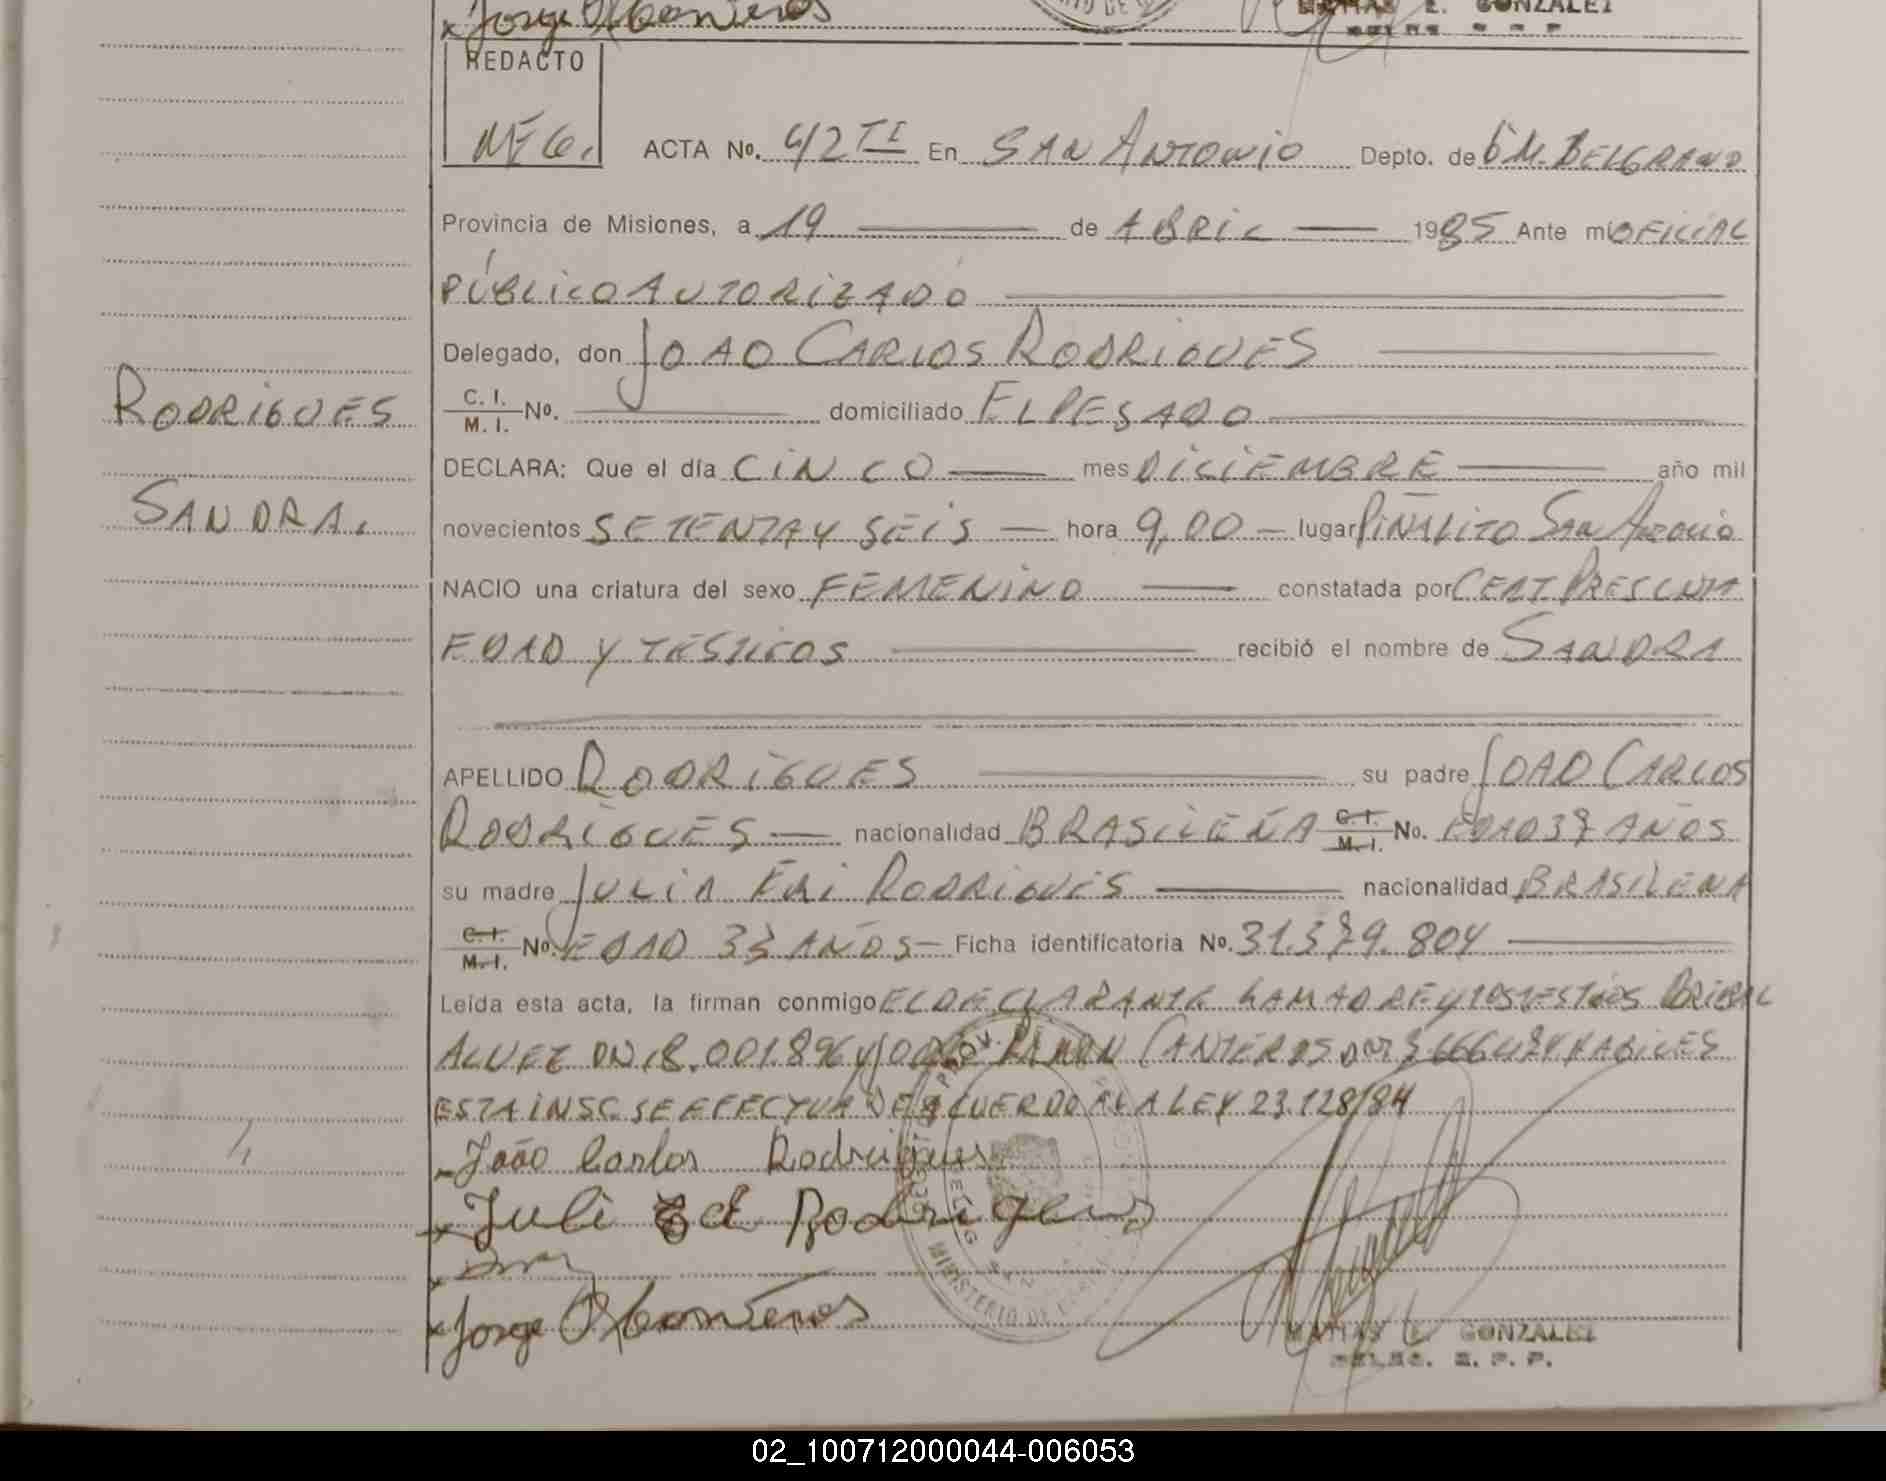 Jorge
MATIAS E. GONZALEZ
REDACTO
MEG.
ACTA No. 42 TI En SAN ANTONIO Depto. de G M. BELGRANO
Provincia de Misiones, a 19 de ABRIL 1985 Ante mí OFICIAL
PÚBLICO AUTORIZADO
Delegado, don JOAO CARLOS RODRIGUES
C. I. M. I. No. domiciliado EL PESADO
RODRIGUES
DECLARA: Que el día CINCO mes DICIEMBRE año mil
SANDRA.
novecientos SETENTA Y SEIS hora 9,00 lugar PIÑALITO SAN ANTONIO
NACIO una criatura del sexo FEMENINO constatada por CERT PRESUNTA
EDAD Y TESTIGOS recibió el nombre de SANDRA
APELLIDO RODRIGUES su padre JOAO CARLOS
RODRIGUES nacionalidad BRASILEÑA C. I. M. I. No. EDAD 37 AÑOS
su madre JULIA ERI RODRIGUES nacionalidad BRASILEÑA
C. I. M. I. No. EDAD 33 AÑOS Ficha identificatoria No. 31.379.804
Leída esta acta, la firman conmigo EL DECLARANTE LA MADRE Y LOS TESTIGOS
ALVEZ DNI 8.001.896 Y JORGE RAMON CANTEROS HABILES
ESTA INSC SE EFECTUA DE ACUERDO A LA LEY 23.128/84
João Carlos Rodrigues
Juli Rodrigues
Jorge
MATIAS E. GONZALEZ
DELEG. R. P. P.
02_100712000044-006053